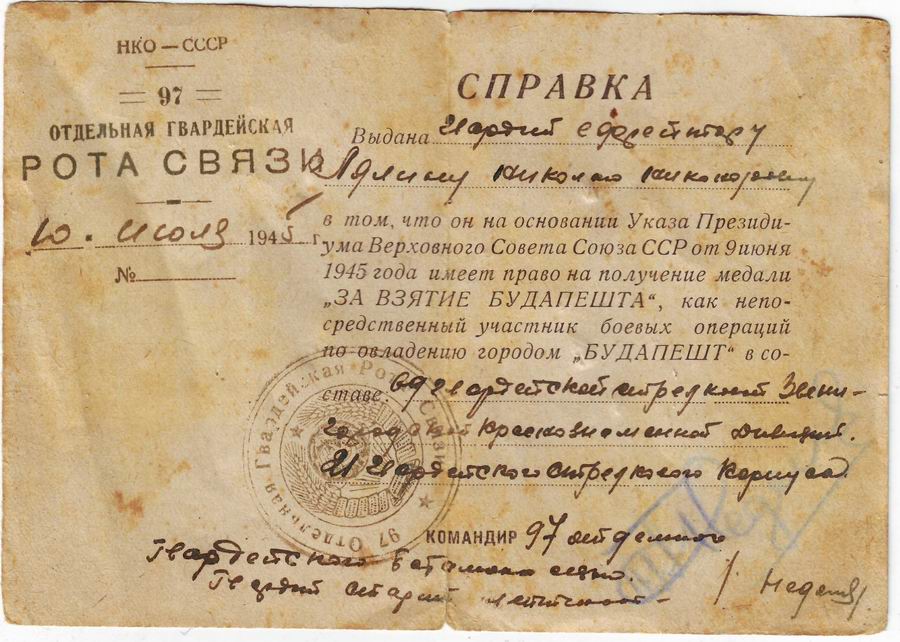 НКО — СССР
97
ОТДЕЛЬНАЯ ГВАРДЕЙСКАЯ
РОТА СВЯЗИ
10. июля 1945 г.
№
СПРАВКА
Выдана Гвардии ефрейтору
Николаю
в том, что он на основании Указа Президи-
ума Верховного Совета Союза ССР от 9 июня
1945 года имеет право на получение медали
„ЗА ВЗЯТИЕ БУДАПЕШТА“, как непо-
средственный участник боевых операций
по овладению городом „БУДАПЕШТ“ в со-
ставе 69 Гвардейской стрелковой Звени-
городской Краснознаменной дивизии.
21 Гвардейского стрелкового Корпуса
97 Отдельная Гвардейская Рота Связи
КОМАНДИР 97 отдельного
Гвардейского батальона связи.
Гвардии старший